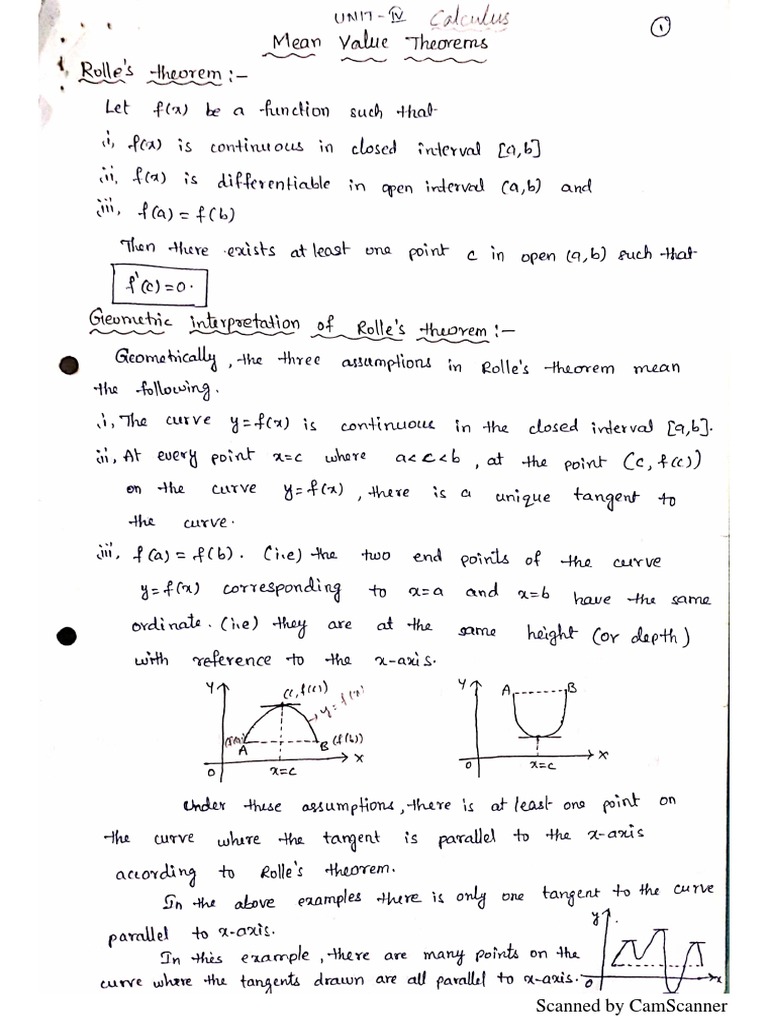 UNIT-IV Calculus
1
Mean Value Theorems
1, Rolle's theorem :-
Let f(x) be a function such that
i, f(x) is continuous in closed interval [a,b]
ii, f(x) is differentiable in open interval (a,b) and
iii, f(a) = f(b)
Then there exists at least one point c in open (a,b) such that
f'(c) = 0.
Geometric interpretation of Rolle's theorem :-
Geometically, the three assumptions in Rolle's theorem mean
the following.
i, The curve y=f(x) is continuous in the closed interval [a,b].
ii, At every point x=c where a<c<b, at the point (c, f(c))
on the curve y=f(x), there is a unique tangent to
the curve.
iii, f(a) = f(b). (i.e) the two end points of the curve
y=f(x) corresponding to x=a and x=b have the same
ordinate. (i.e) they are at the same height (or depth)
with reference to the x-axis.
Y (c, f(c)) y=f(x)
A B (f(b))
O x=c X
Y A B
O x=c X
Under these assumptions, there is at least one point on
the curve where the tangent is parallel to the x-axis
according to Rolle's theorem.
In the above examples there is only one tangent to the curve
parallel to x-axis.
In this example, there are many points on the
curve where the tangents drawn are all parallel to x-axis.
y
o x
Scanned by CamScanner